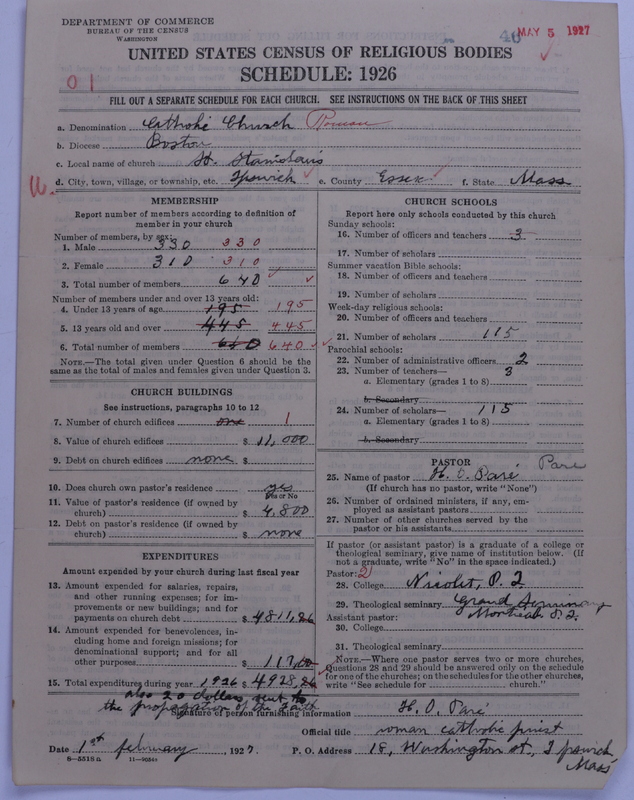 DEPARTMENT OF COMMERCE
BUREAU OF THE CENSUS
WASHINGTON
40
MAY 5 1927
UNITED STATES CENSUS OF RELIGIOUS BODIES
SCHEDULE: 1926
01
FILL OUT A SEPARATE SCHEDULE FOR EACH CHURCH. SEE INSTRUCTIONS ON THE BACK OF THIS SHEET
a. Denomination Catholic Church Roman
b. Diocese Boston
c. Local name of church St. Stanislaus
d. City, town, village, or township, etc. Ipswich e. County Essex f. State Mass
MEMBERSHIP
Report number of members according to definition of member in your church
Number of members, by sex:
1. Male 330 330
2. Female 310 310
3. Total number of members 640
Number of members under and over 13 years old:
4. Under 13 years of age 195 195
5. 13 years old and over 445 445
6. Total number of members 640 640
NOTE.—The total given under Question 6 should be the same as the total of males and females given under Question 3.
CHURCH BUILDINGS
See instructions, paragraphs 10 to 12
7. Number of church edifices one 1
8. Value of church edifices $ 11,000
9. Debt on church edifices none $
10. Does church own pastor's residence yes
Yes or No
11. Value of pastor's residence (if owned by church) $ 4,800
12. Debt on pastor's residence (if owned by church) $ none
EXPENDITURES
Amount expended by your church during last fiscal year
13. Amount expended for salaries, repairs, and other running expenses; for improvements or new buildings; and for payments on church debt $ 4811,86
14. Amount expended for benevolences, including home and foreign missions; for denominational support; and for all other purposes $ 117,00
15. Total expenditures during year 1926 $ 4928,86
also 20 dollars sent to
the propagation of the Faith
CHURCH SCHOOLS
Report here only schools conducted by this church
Sunday schools:
16. Number of officers and teachers 3
17. Number of scholars
Summer vacation Bible schools:
18. Number of officers and teachers
19. Number of scholars
Week-day religious schools:
20. Number of officers and teachers
21. Number of scholars 115
Parochial schools:
22. Number of administrative officers 2
23. Number of teachers— 3
a. Elementary (grades 1 to 8)
b. Secondary
24. Number of scholars— 115
a. Elementary (grades 1 to 8)
b. Secondary
PASTOR
25. Name of pastor H. O. Paré Pare
(If church has no pastor, write "None")
26. Number of ordained ministers, if any, employed as assistant pastors
27. Number of other churches served by the pastor or his assistants
If pastor (or assistant pastor) is a graduate of a college or theological seminary, give name of institution below. (If not a graduate, write "No" in the space indicated.)
Pastor: 2
28. College Nicolet, P. Q
29. Theological seminary Grand Seminary
Montreal P.Q.
Assistant pastor:
30. College
31. Theological seminary
NOTE.—Where one pastor serves two or more churches, Questions 28 and 29 should be answered only on the schedule for one of the churches; on the schedules for the other churches, write "See schedule for church."
Signature of person furnishing information H. O. Paré
Official title roman catholic priest
Date 1st february, 1927. P. O. Address 18, Washington st, Ipswich
Mass
8—5519a 11—9034